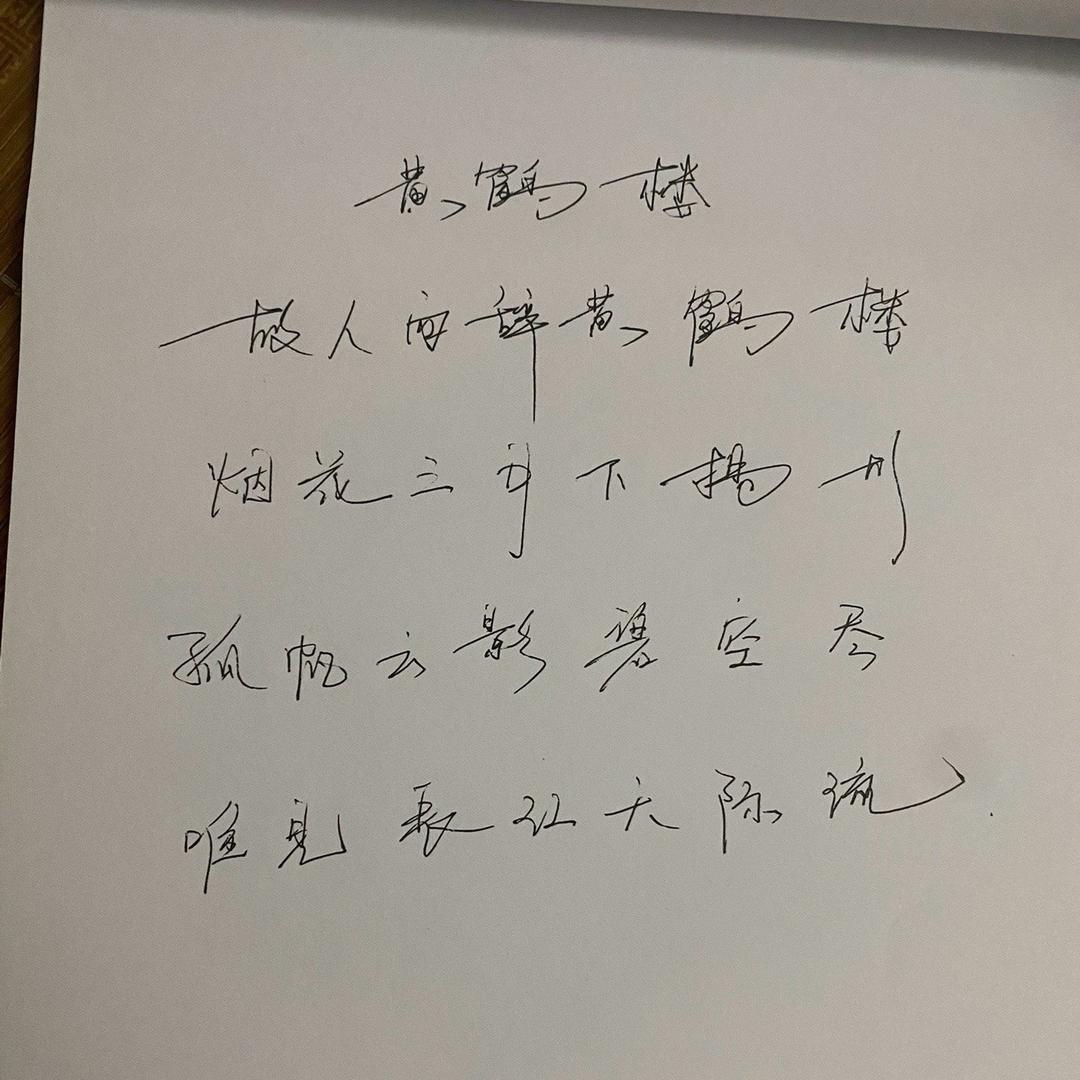 黄鹤楼
故人西辞黄鹤楼
烟花三月下揚州
孤帆云影碧空尽
唯見長江天际流.